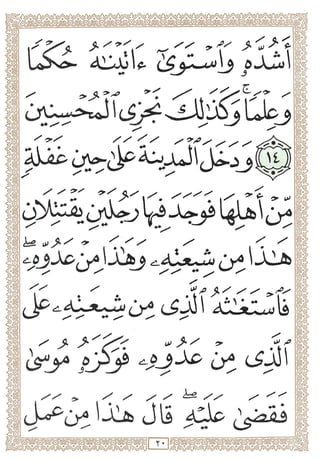 أَشُدَّهُۥ وَٱسۡتَوَىٰٓ ءَاتَيۡنَٰهُ حُكۡمٗا
وَعِلۡمٗاۚ وَكَذَٰلِكَ نَجۡزِي ٱلۡمُحۡسِنِينَ
١٤ وَدَخَلَ ٱلۡمَدِينَةَ عَلَىٰ حِينِ غَفۡلَةٖ
مِّنۡ أَهۡلِهَا فَوَجَدَ فِيهَا رَجُلَيۡنِ يَقۡتَتِلَانِ
هَٰذَا مِن شِيعَتِهِۦ وَهَٰذَا مِنۡ عَدُوِّهِۦۖ
فَٱسۡتَغَٰثَهُ ٱلَّذِي مِن شِيعَتِهِۦ عَلَى
ٱلَّذِي مِنۡ عَدُوِّهِۦ فَوَكَزَهُۥ مُوسَىٰ
فَقَضَىٰ عَلَيۡهِۖ قَالَ هَٰذَا مِنۡ عَمَلِ
٢٠